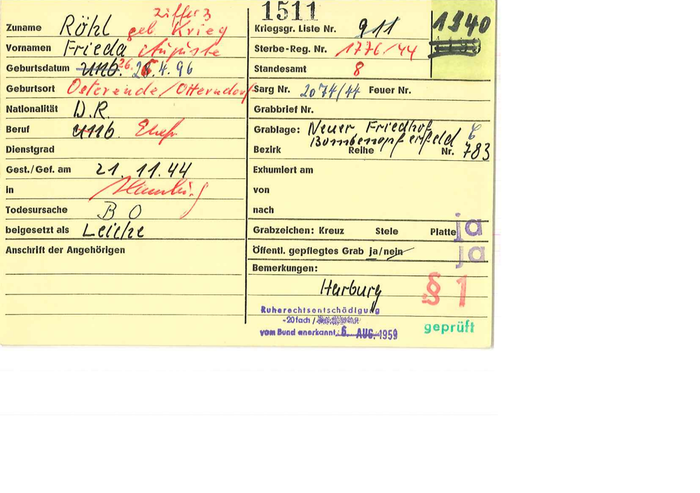 1511
Ziffer 3
Zuname Röhl geb Krieg
Vornamen Frieda Auguste
Geburtsdatum unb. 26. 4. 96
Geburtsort Osterende/Otterndorf
Nationalität D.R.
Beruf unb. Ehefr
Dienstgrad
Gest./Gef. am 21. 11. 44
in Hamburg
Todesursache B O
beigesetzt als Leiche
Anschrift der Angehörigen
Kriegsgr. Liste Nr. 911
1340
Sterbe-Reg. Nr. 1776/44
Standesamt 8
Sarg Nr. 2074/44 Feuer Nr.
Grabbrief Nr.
Grablage: Neuer Friedhof
Bombenopferfeld
Bezirk Reihe Nr. 783
Exhumiert am
von
nach
Grabzeichen: Kreuz Stele Platte ja
Öffentl. gepflegtes Grab ja/nein ja
Bemerkungen:
Harburg
§ 1
Ruherechtsentschädigung
-20fach /
vom Bund anerkannt 6. AUG. 1959
geprüft